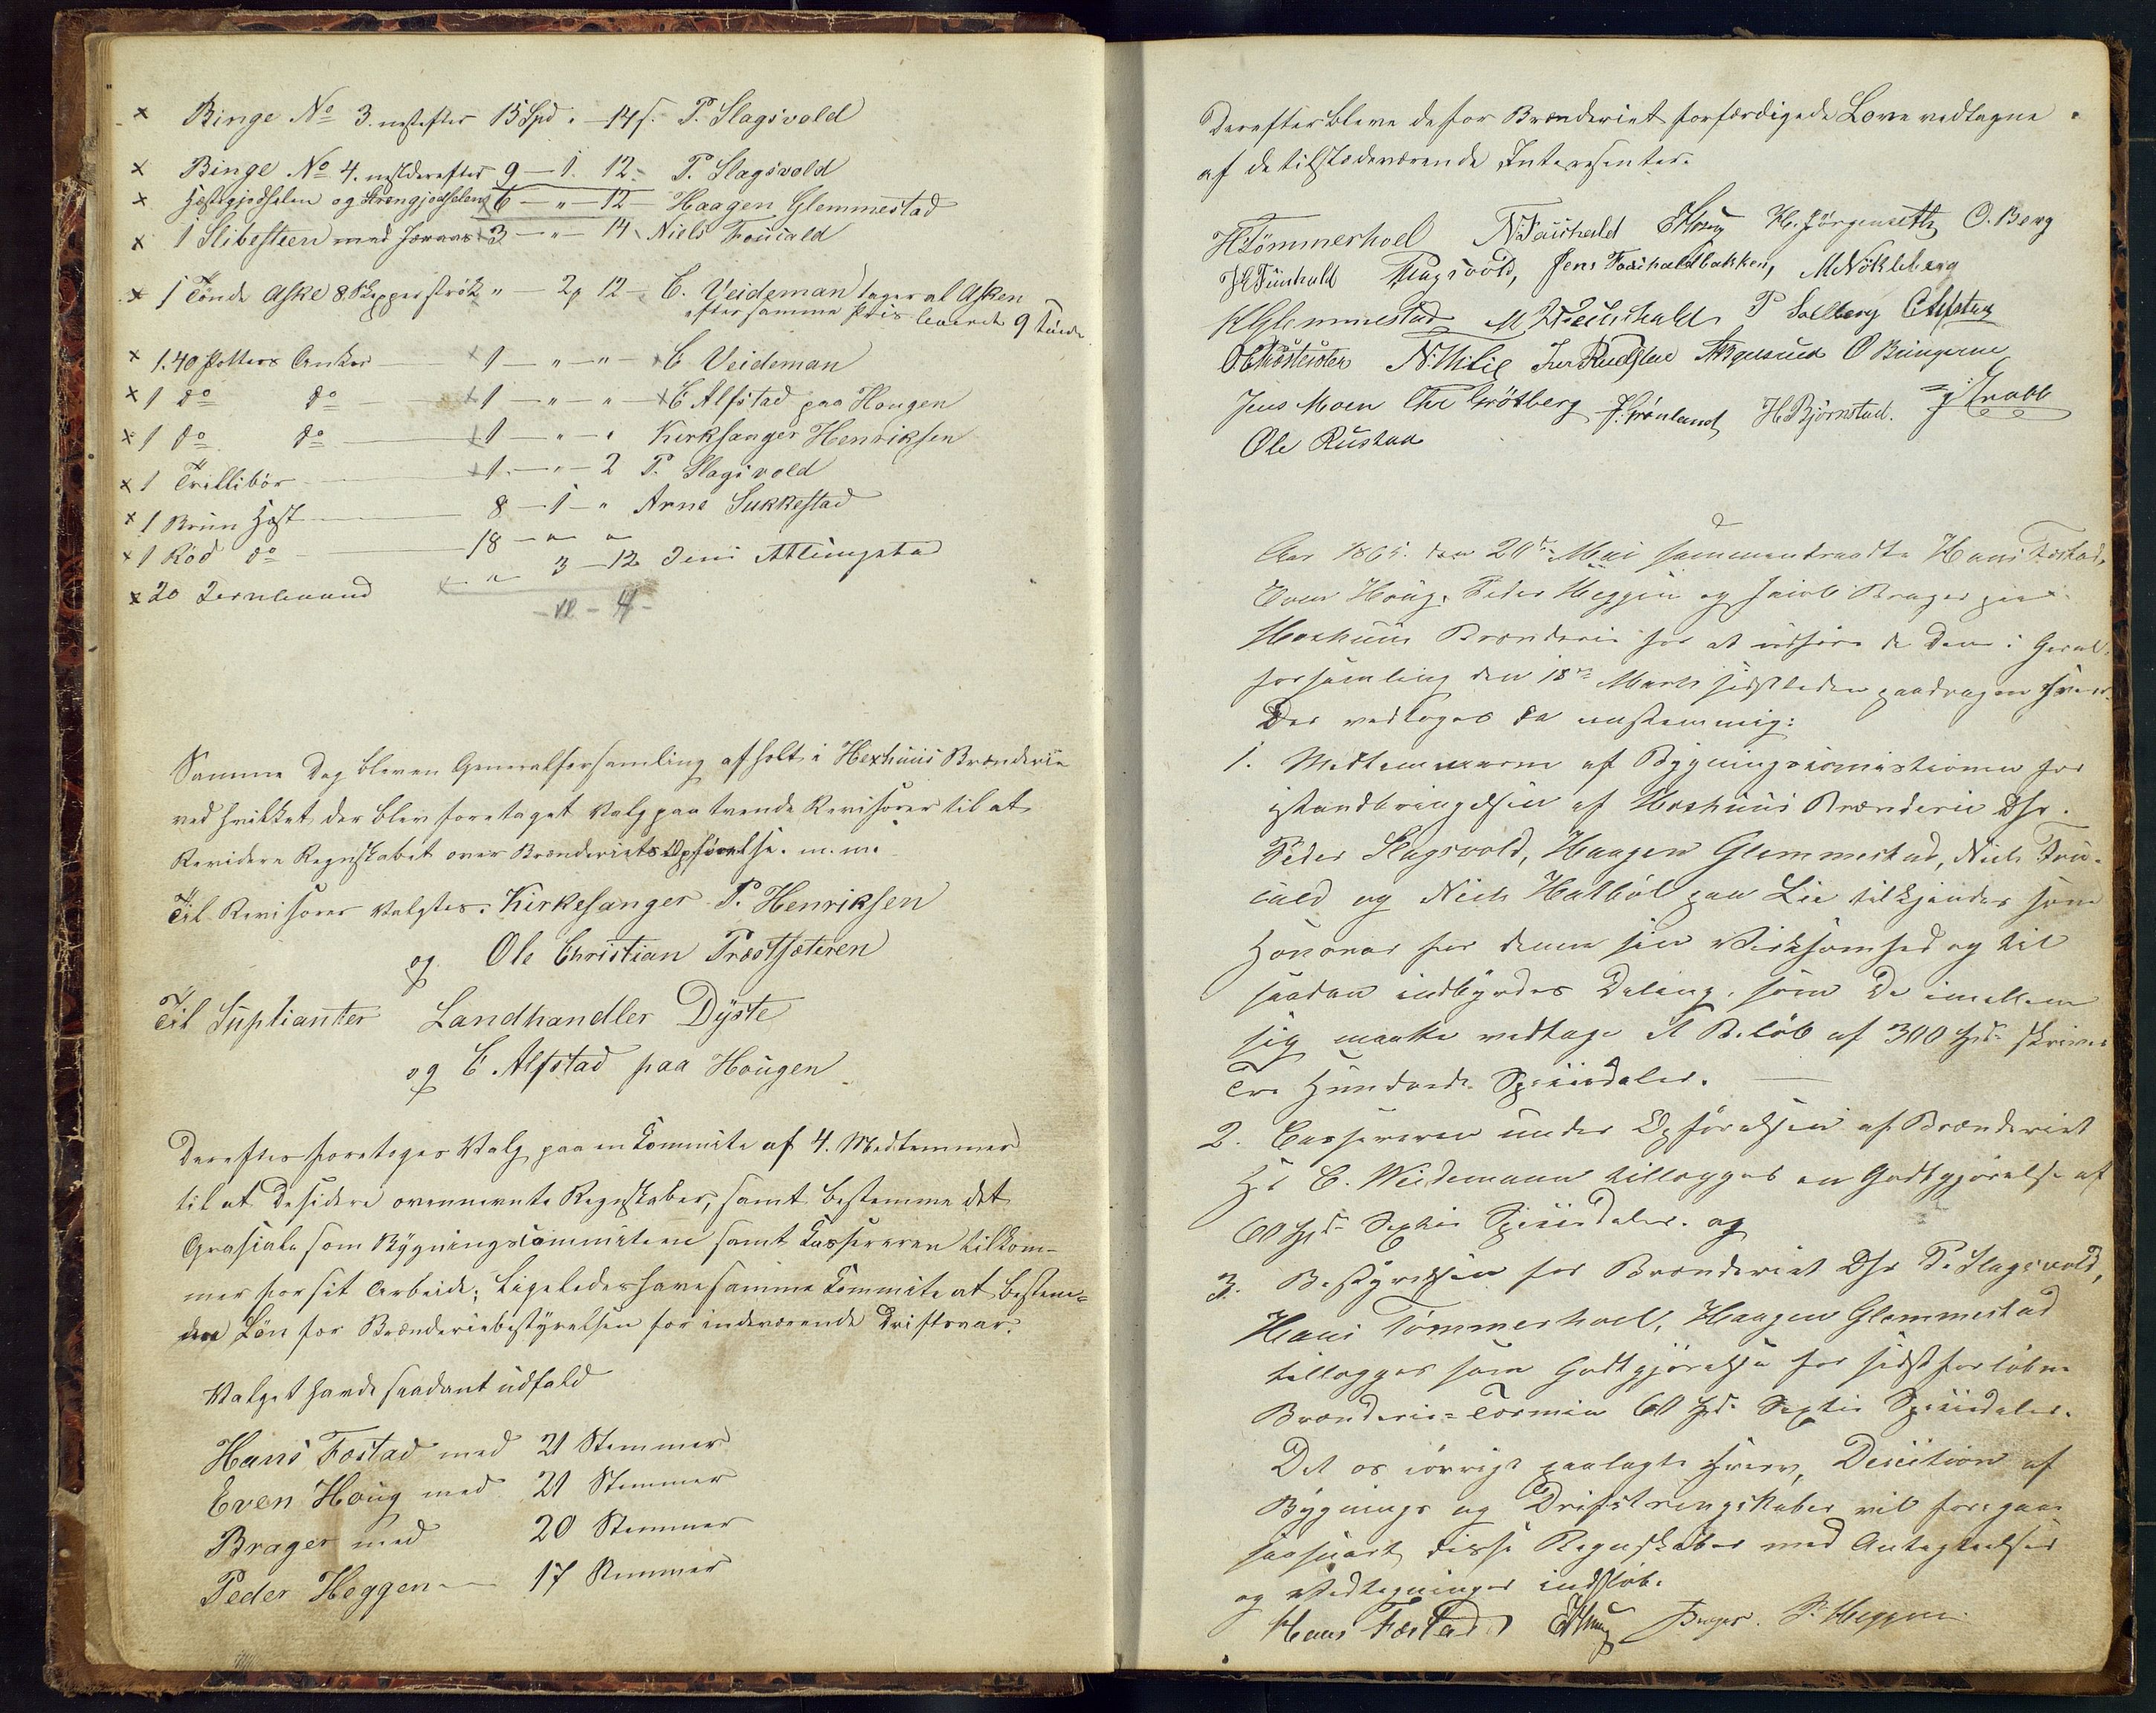 x Binge No 3. nestefter 15 Spd " - 14 s. P. Slagsvold
x Binge No 4. nestderefter 9 - 1. 12 - P. Slagsvold
x Hestegjødselen og Svengjødselen 6 - " - 12 - Haagen Glemmestad
x 1 Slibesteen med 3 - " - 14 Niels Fouald
x 1 Tønde Aske 8 Skjepper strøk " - 2 12 - C. Veideman tager al Asken
efter samme Pris leveret 9 Tønde
x 1. 40 Potters Anker x 1 - " - " - x C Veideman
x 1 do do x 1 - " - " - x C Alfstad paa Hougen
x 1 do do x 1 - " - " Kirksanger Henriksen
x 1 Trillibør x 1 - " - 2 P. Slagsvold
x 1 Brun Hest 8 - 1 - " Arne Sukkestad
x 1 Rød do 18 - " "
x 20 Jernbaand x - " - 3 - 12 Jens
Samme Dag blev en Generalforsamling afholt i Hexhuus Brænderie
ved hvilket der blev foretaget Valg paa tvende Revisorer til at
Revidere Regnskabet over Brænderiets Opførelse. m. m.
Til Revisorer valgtes. Kirkesanger P. Henriksen
og Ole Christian Præstsæteren
Til Suplianter Landhandler Dyste
og C. Alfstad paa Hougen
Derefter foretoges Valg paa en Kommite af 4. Medlemmer
til at Desidere ovennevnte Regnskaber, samt bestemme det
Grasiale som Bygningscommiteen samt Kassereren tilkom-
mer for sit Arbeide; ligeledes have samme Kommite at bestem=
me Løn for Brænderiebestyrelsen for indeværende Driftsaar.
Valget havde saadant udfald
Hans Fæstad med 21 Stemmer
Even Houg med 21 Stemmer
Brager med 20 Stemmer
Peder Heggen - 17 Stemmer
Derefter bleve de for Brænderiet forfærdigede Love vedtagne
af de tilstedeværende Interesenter.
H Tömmerhoel N. Fauchald EHoug O. Berg
Slagsvold, Jens Fauchaldbakken, M Nökleberg
K Glemmestad M Fauchald P Solberg C Alfstad
N. Hilie O Bungerne
Jens Moen Chr Gröttberg P. Grönland H. Björnstad.
Ole Rustad
Aar 1865. den 20de Mai sammentraadte Hans Fæstad,
Even Houg, Peder Heggen og Jacob Brager paa
Hexhuus Brænderie for at udføre de dem i General-
forsamling den 18de Marts sidstleden paadragne Hverv.
Der vedtages da enstemmig:
1. Medlemmerne af Bygningscomissionen for
istandbringelsen af Hexhuus Brænderie Dhr.
Peder Slagsvold, Haagen Glemmestad, Niels Fou-
cald og Niels Halböl paa Lie tilkjendes som
Honorar for denne sin Virksomhed og til
saadan indbyrdes Deling, som de imellem
sig maatte vedtage et Beløb af 300 Spd. skriver
Tre Hundrede Speciedaler.
2. Cassereren under Opførelsen af Brænderiet
Hr C. Weidemann tillægges en Godtgjørelse af
60 Spd. Sextie Speciedaler. og
3. Bestyrelsen for Brænderiet Dhr P. Slagsvold,
Hans Tömmerhoel, Haagen Glemmestad
tillægges som Godtgjørelse for sidst forløbne
Brænderie=Termin 60 Spd. Sextie Speciedaler.
Det os iøvrigt paalagte Hverv, Decition af
Bygnings og Driftsregnskaber vil foregaa
saasnart disse Regnskaber med Antegnelser
og Vedtegninger indkøb.
Hans Fæstad EHoug Brager. P. Heggen